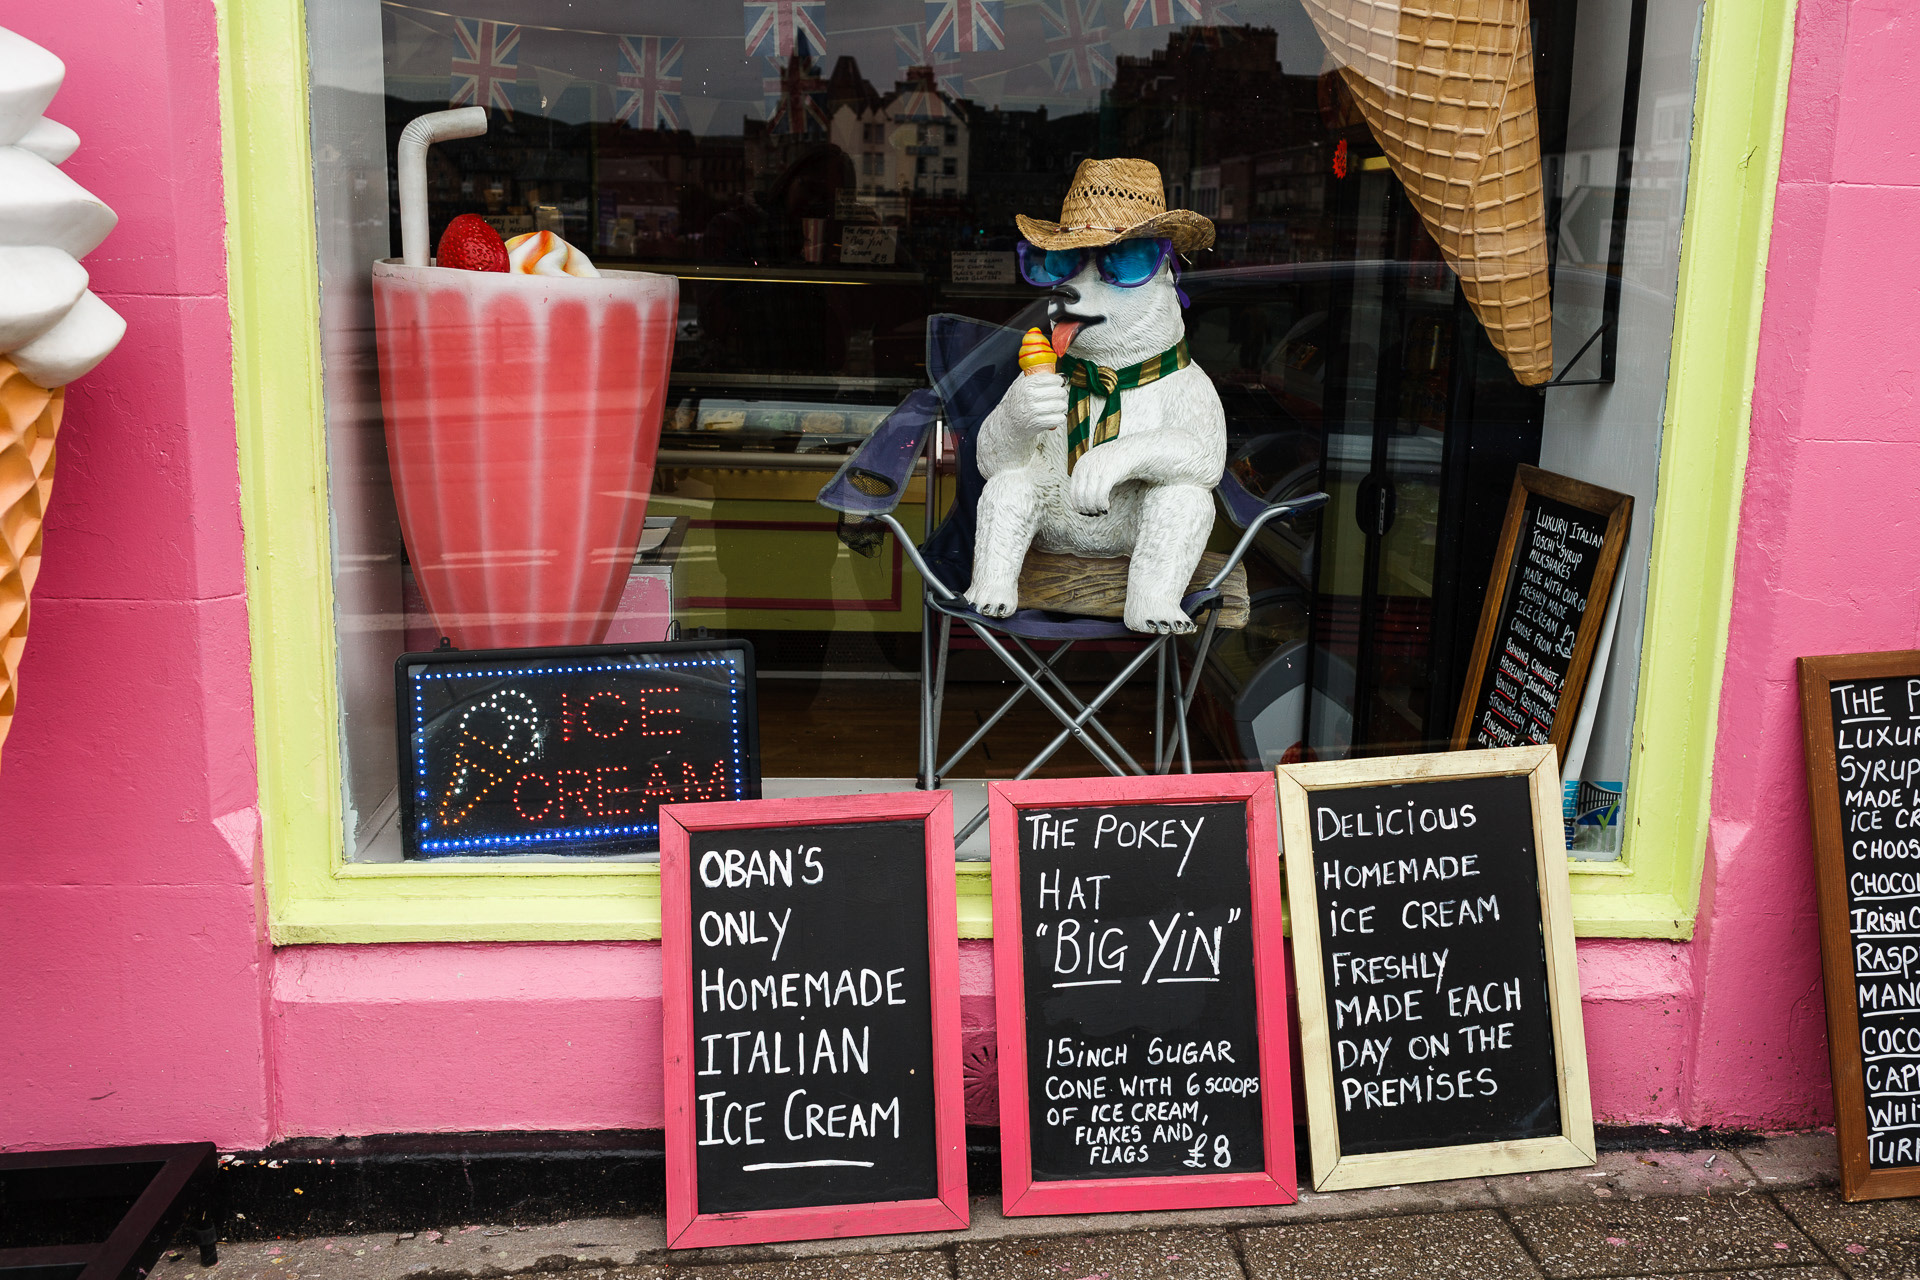 ICE
CREAM
OBAN'S
ONLY
HOMEMADE
ITALIAN
ICE CREAM
THE POKEY
HAT
"BIG YIN"
15 INCH SUGAR
CONE WITH 6 SCOOPS
OF ICE CREAM,
FLAKES AND
FLAGS £8
DELICIOUS
HOMEMADE
ICE CREAM
FRESHLY
MADE EACH
DAY ON THE
PREMISES
LUXURY ITALIAN
TOSCHI SYRUP
MILKSHAKES
MADE WITH OUR
FRESHLY MADE
ICE CREAM
CHOOSE FROM
BANANA, CHOCOLATE,
HAZELNUT, IRISH CREAM,
VANILLA, RASPBERRY
STRAWBERRY,
PINEAPPLE
THE POKEY HAT
"BIG YIN"
£8
THE P
LUXUR
SYRUP
MADE
ICE CR
CHOOS
CHOCOL
IRISH C
RASP
MAN
COCO
CAPP
WHI
TUR